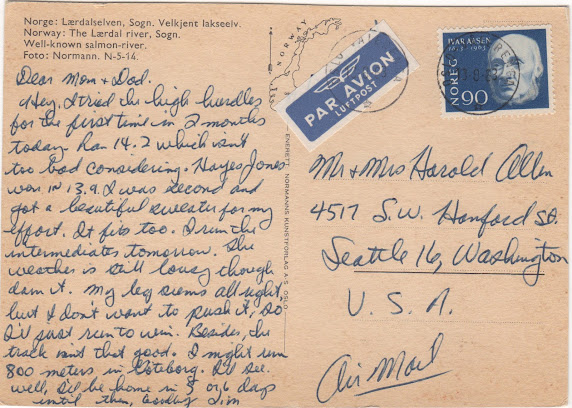 Norge: Lærdalselven, Sogn. Velkjent lakseelv.
Norway: The Lærdal river, Sogn.
Well-known salmon-river.
Foto: Normann. N-5-14.
Dear Mom & Dad.
Hey, I tried the high hurdles
for the first time in 2 months
today. Ran 14.2 which isn't
too bad considering. Hayes Jones
won in 13.9. I was second and
got a beautiful sweater for my
effort. It fits too. I run the
intermediates tomorrow. The
weather is still lousy though
darn it. My leg seems all right,
but I don't want to push it, so
I'll just run to win. Besides, the
track isn't that good. I might run
800 meters in Göteborg. I'll see.
well, I'll be home in 5 or 6 days
until then, Jim
NORWAY
PAR AVION
LUFTPOST
ENERETT. NORMANNS KUNSTFORLAG A/S, OSLO
IVAR AASEN
1963
NOREG
90
Mr & Mrs Harold Allen
4517 S.W. Hanford St.
Seattle 16, Washington
U.S.A.
Air Mail